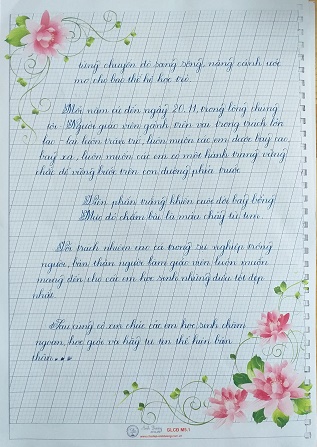 từng chuyến đò sang sông, nâng cánh ước
mơ cho bao thế hệ học trò.
Mỗi năm cứ đến ngày 20.11, trong lòng chúng
tôi - Người giáo viên gánh trên vai trọng trách lớn
lao - lại luôn trăn trở, luôn muốn các em được bay cao,
bay xa, luôn muốn các em có một hành trang vững
chắc để vững bước trên con đường phía trước.
Viên phấn trắng khiến cuộc đời bay bổng
Mực đỏ chấm bài là máu chảy từ tim
Với trách nhiệm cao cả trong sự nghiệp trồng
người, bản thân người làm giáo viên luôn muốn
mang đến cho các em học sinh những điều tốt đẹp
nhất.
Sau cùng cô xin chúc các em học sinh chăm
ngoan, học giỏi và hãy tự tin thể hiện bản
thân...
GLCB M5.1